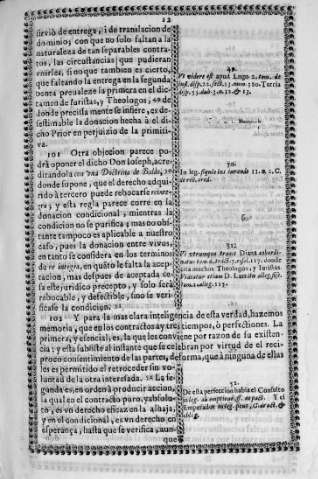 22
sirviò de entrega, i de translacion de
dominio; con que no solo faltan a la
naturaleza de tan separables contra-
tos, las circunstancias que pudieran
vnirles, sino que tambien es cierto,
que faltando la entrega en la segunda
no era prevalece la primera en el dic-
tamen de Juristas, y Theologos, 49 de
donde precisamente se infiere, ex de-
sestimable la donacion hecha à el di-
cho Prior en perjuizio de la primiti-
va.
101 Otra objecion parece po-
drà oponer el dicho Don Ioseph, acre-
ditandola con vna Doctrina de Baldo, 50
donde supone, que el derecho adqui-
rido à tercero puede rebocarse
y esta regla parece corre en la
donacion condicional, mientras la
condicion no se purifica; mas no obs-
tante tampoco es aplicable a nuestro
caso, pues la donacion entre vivos,
en tanto se considera en los terminos
de re integra, en quãto le falta la acep-
tacion, mas despues de aceptada ce-
sa este juridico precepto, y solo serà
rebocable, y defectible, sino se veri-
ficasse la condicion. 51
102 Y para la mas clara inteligencia de esta verdad, hazemos
memoria, que en los contractos ay tres tiempos, ò perfectiones. La
primera, y esencial, es, la que les conviene por razon de su existen-
cia: y esta subsiste al instante que se celebran por virtud de el reci-
proco consentimiento de las partes, de forma, que à ninguna de ellas
les es permitido el retroceder sin vo-
luntad de la otra interesada. 52 La se-
gunda es, en orden à producir accion,
la qual en el contracto puro, y absolu-
to, es vn derecho eficaz en la alhaja,
y en el condicional, es vn derecho en
esperança, hasta que se verifica, aun
que
49.
Vt videre est apud Lugo 2. tom. de
50.
In leg.
51.
Vt utrumque tradit Diana
donde
cita muchos Theologos, y Juristas.
52.
De esta perfeccion habla el Consulto